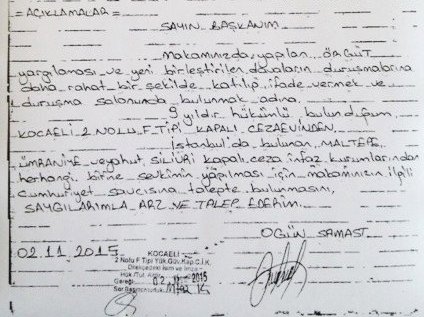 =AÇIKLAMALAR=
SAYIN BAŞKANIM
Makamınızda yapılan ÖRGÜT
yargılaması ve yeni birleştirilen davaların duruşmalarına
daha rahat bir şekilde katılıp, ifade vermek ve
duruşma salonunda bulunmak adına,
9 yıldır hükümlü bulunduğum
KOCAELİ 2 NOLU F TİPİ KAPALI CEZAEVİNDEN,
İstanbul'da bulunan MALTEPE
ÜMRANİYE veyahut SİLİVRİ kapalı ceza infaz kurumlarından
herhangi birine sevkimin yapılması için makamınızın ilgili
cumhuriyet savcısına talepte bulunmasını,
SAYGILARIMLA ARZ VE TALEP EDERİM.
OGÜN SAMAST
02.11.2015
KOCAELİ
2 Nolu F Tipi Yük.Güv.Kap.C.İ.K.
Dilekçedeki isim ve imza
Hük./Tut.
02 2015